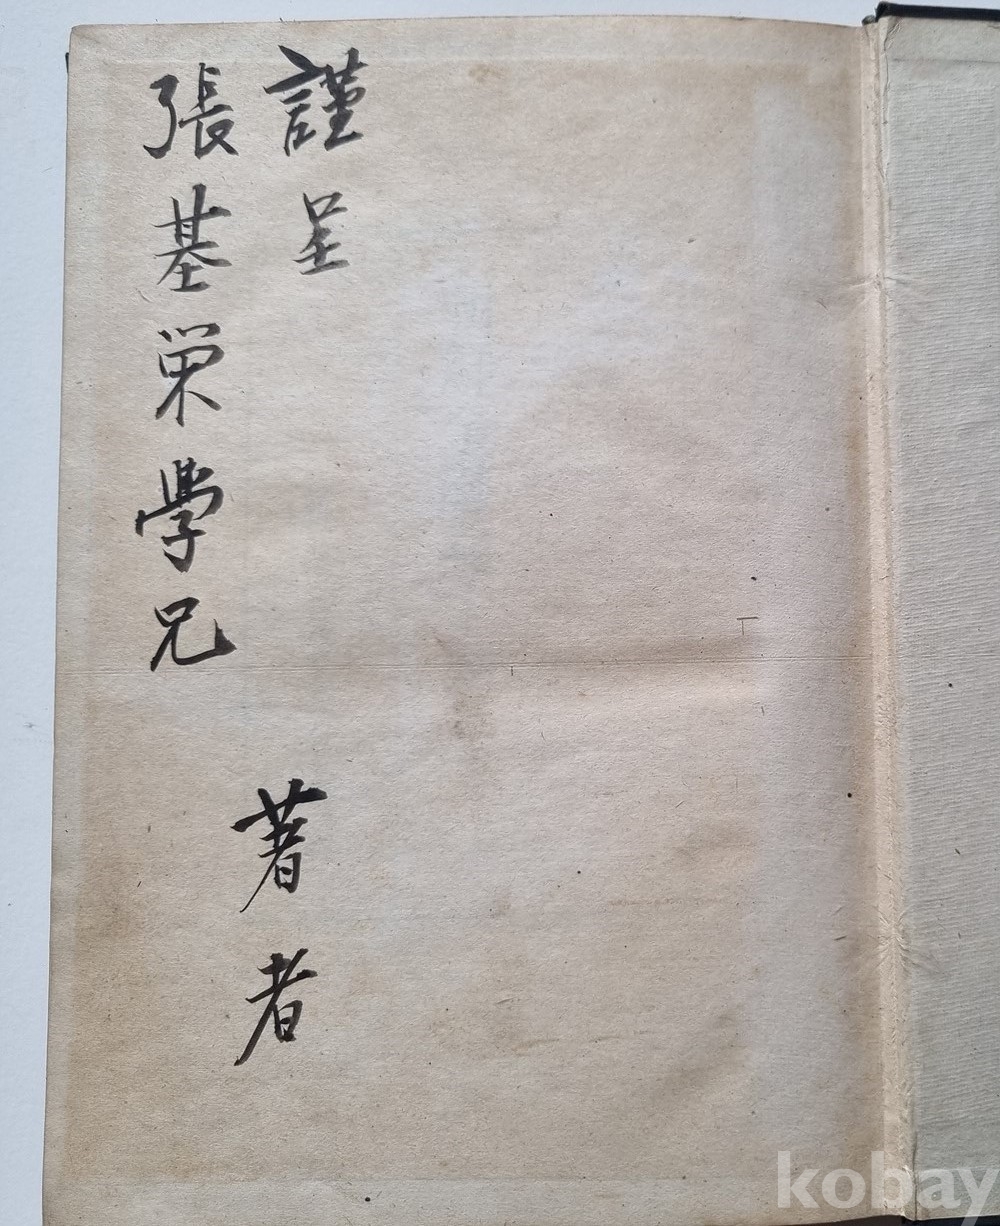 謹呈
張基栄學兄
著者
kobay